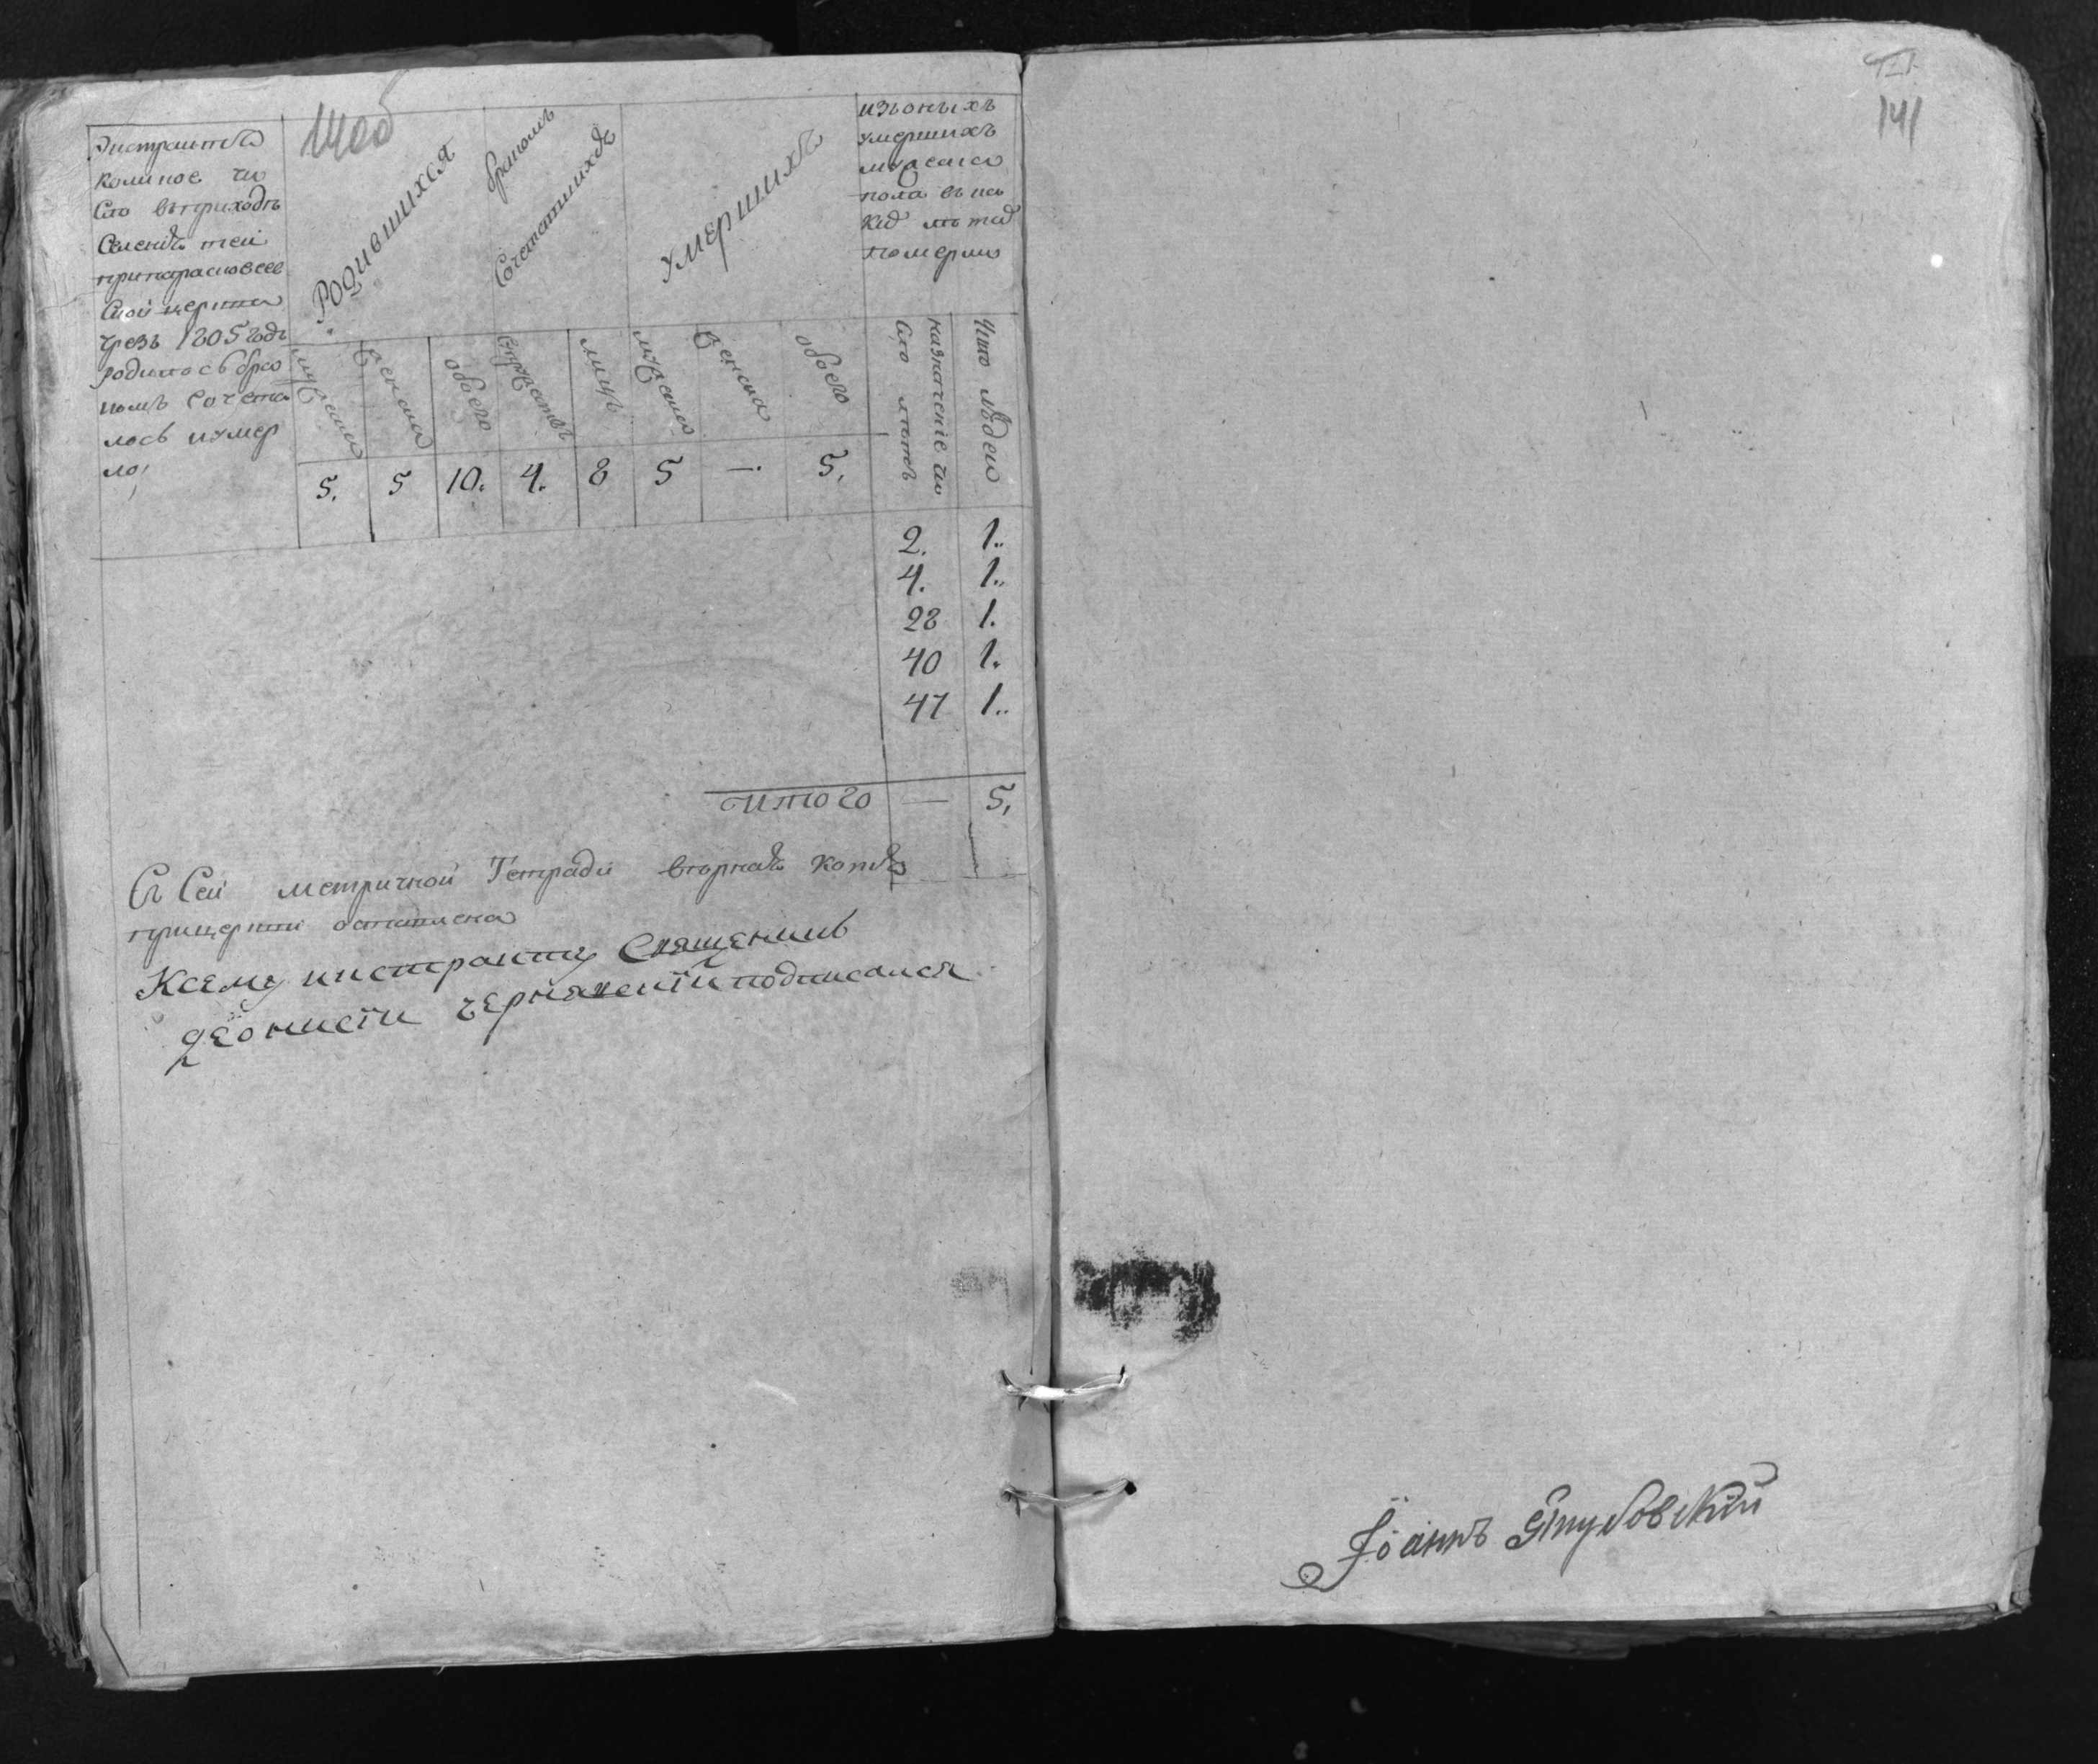 Экстрактъ
коликое чи
сло въприходѣ
Селенія
припарасковеев
Ской церкви
чрезъ 1805 годъ
родилось бра
комъ сочета
лось иумер
ло,
Родившихся
бракомъ
Сочетавшихся
умершихъ
изъоныхъ
умершихъ
мужеска
пола въка
кие лѣта
померло
мужеска
женска
обоего
супружествъ
лицъ
мужеска
женска
обоего
назначение чи
сло лѣтъ
Число людей
5. 5 10. 4. 8 5 —. 5.
2. 1..
4. 1..
28 1.
40 1.
47 1..
Итого — 5,
Съ Сей метричной Тетради вѣрная копія
прицеркви оставлена
Ксему екстракту Священникъ
деонисти чернявский подписался
141
Іоаннъ Якубовский